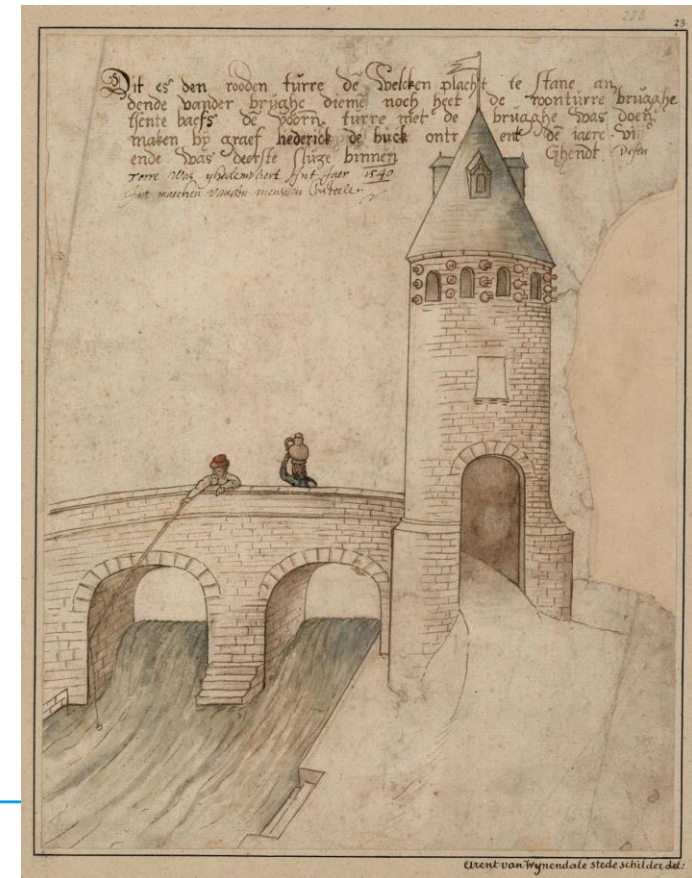 223
23
Dit es den rooden turre de Welcken placht te stane an
dende vander brugghe diemē noch heet de roonturre brugghe
tsente baefs de voorn. turre met de brugghe was doen
maken by graef hederick de buck ontr ent de iaere · vi
ende was deerste sluze binnen Ghendt desen
Torre Was ghedemoliert Int Jaer 1540
Int maecken vanden nieuwen Casteele
Arent van Wynendale stede schilder del: